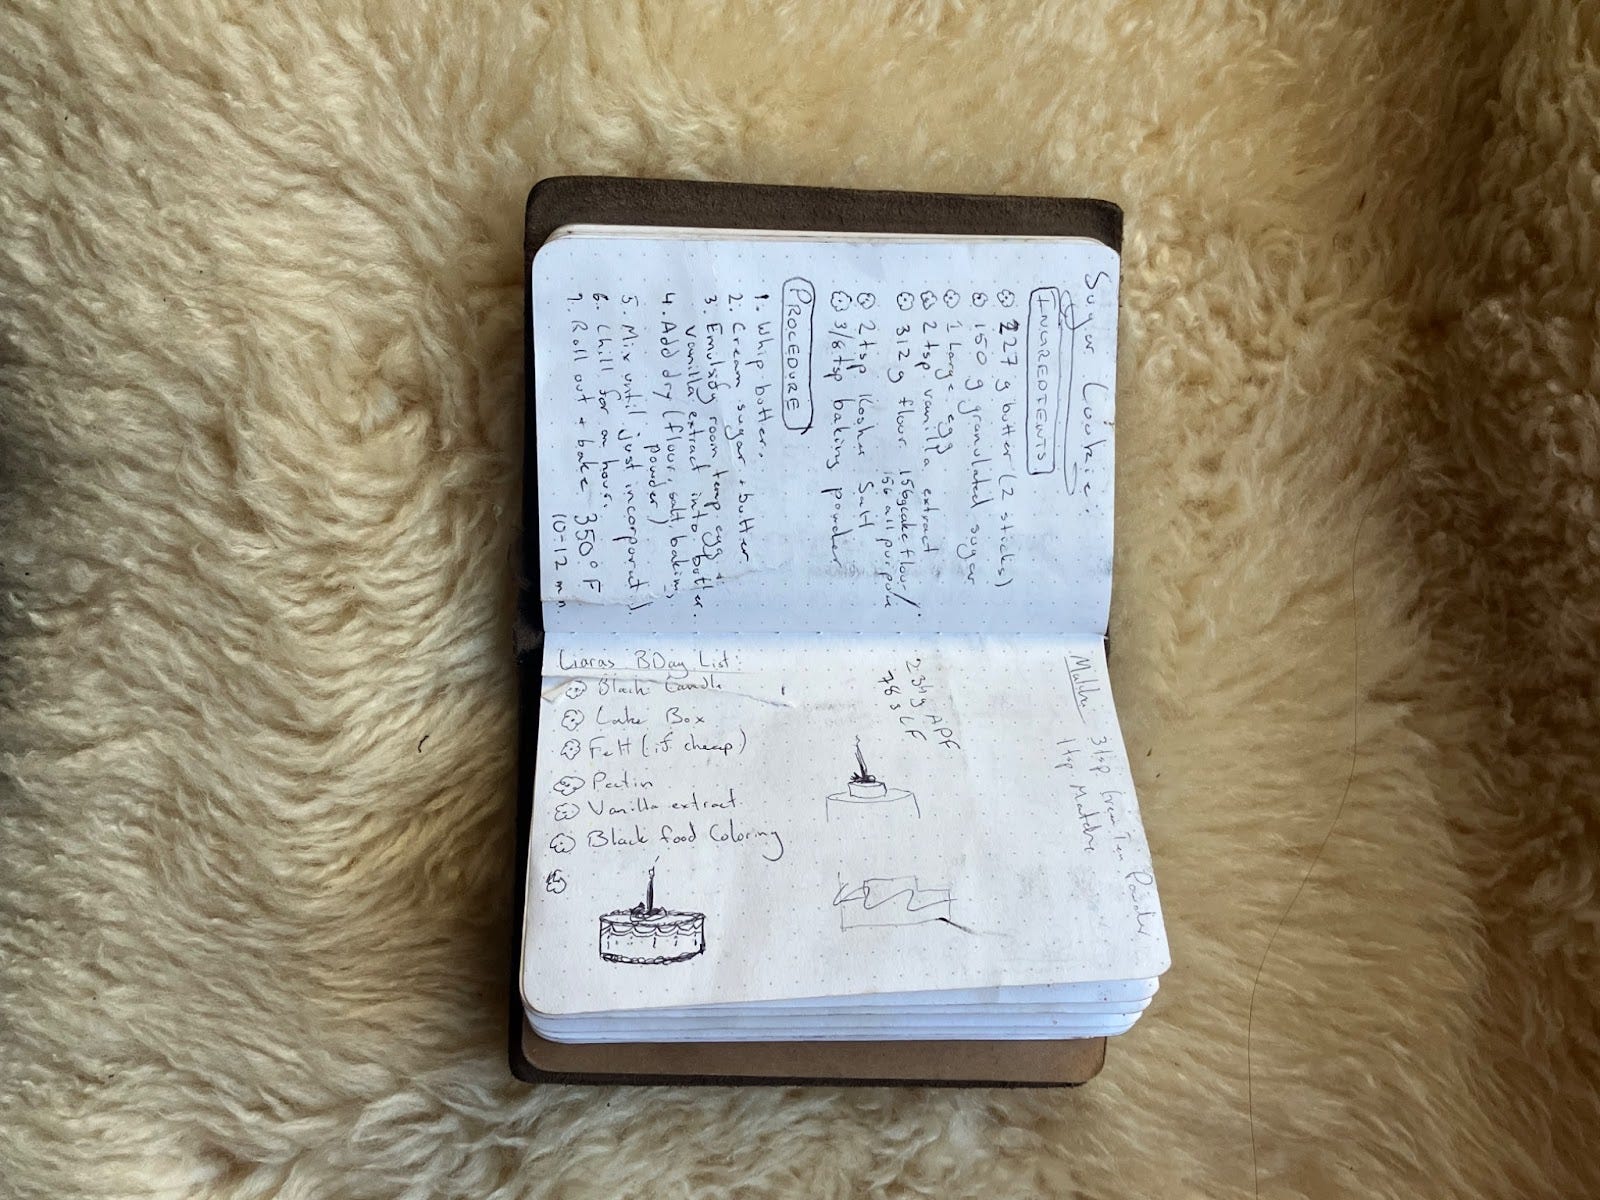 Sugar Cookie:
INGREDIENTS
227 g butter (2 sticks)
150 g granulated sugar
1 Large egg
2 tsp vanilla extract
312 g flour 156g cake flour/
156 all purpose
2 tsp Kosher Salt
3/8 tsp baking powder
PROCEDURE
1. Whip butter.
2. Cream sugar + butter
3. Emulsify room temp egg +
vanilla extract into butter.
4. Add dry (flour, salt, baking
powder)
5. Mix until just incorporated.
6. Chill for an hour.
7. Roll out + bake 350°F
10-12 min.
Matcha 3 tsp Green Tea Powder
1 tsp Matcha
234g APF
78g CF
Ciaras BDay List:
Black Candle
Cake Box
Felt (if cheap)
Pectin
Vanilla extract
Black food Coloring